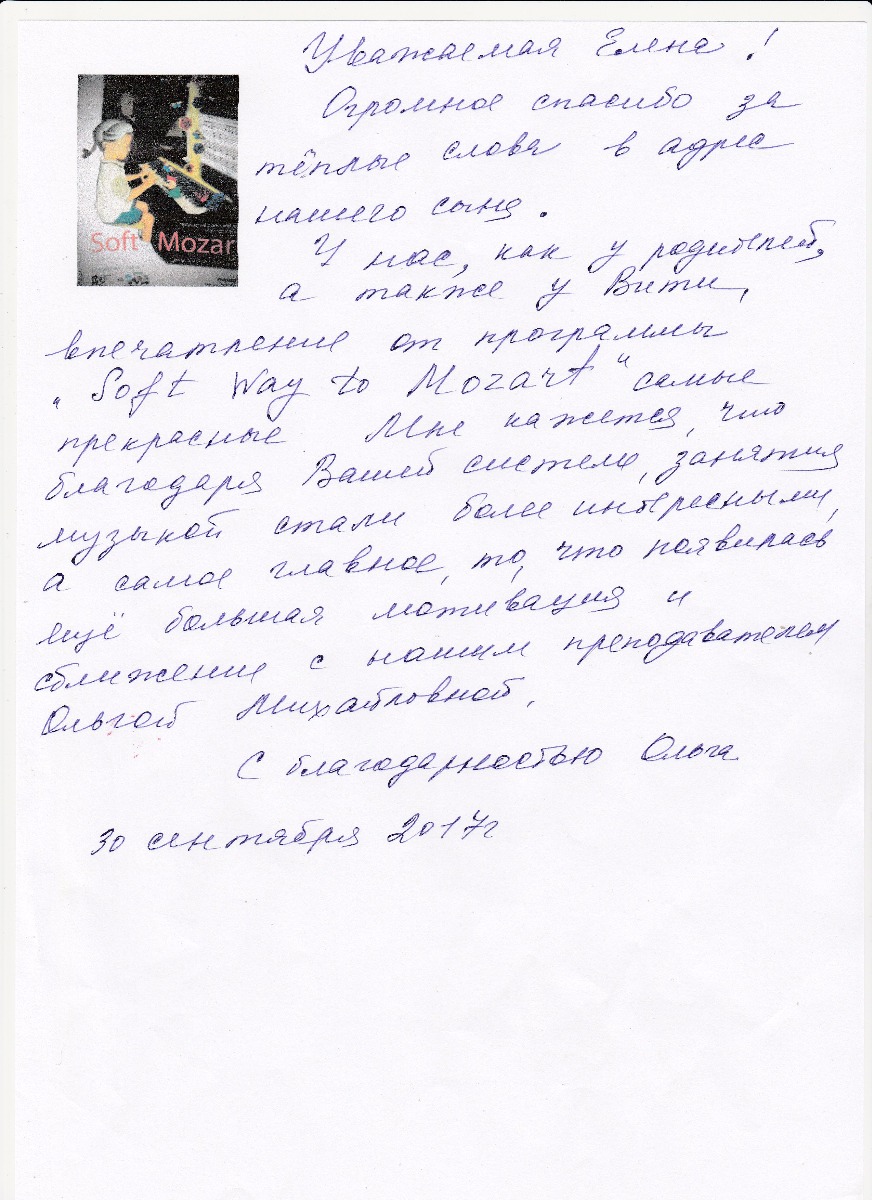 Уважаемая Елена!
Огромное спасибо за
тёплые слова в адрес
нашего сына.
Soft Mozar
У нас, как у родителей,
а также у Вити,
впечатление от программы
„Soft Way to Mozart" самые
прекрасные Мне кажется, что
благодаря Вашей системе, занятия
музыкой стали более интересными,
а самое главное, то, что появилась
ещё большая мотивация и
сближение с нашим преподавателем
Ольгой Михайловной.
С благодарностью Ольга
30 сентября 2017г